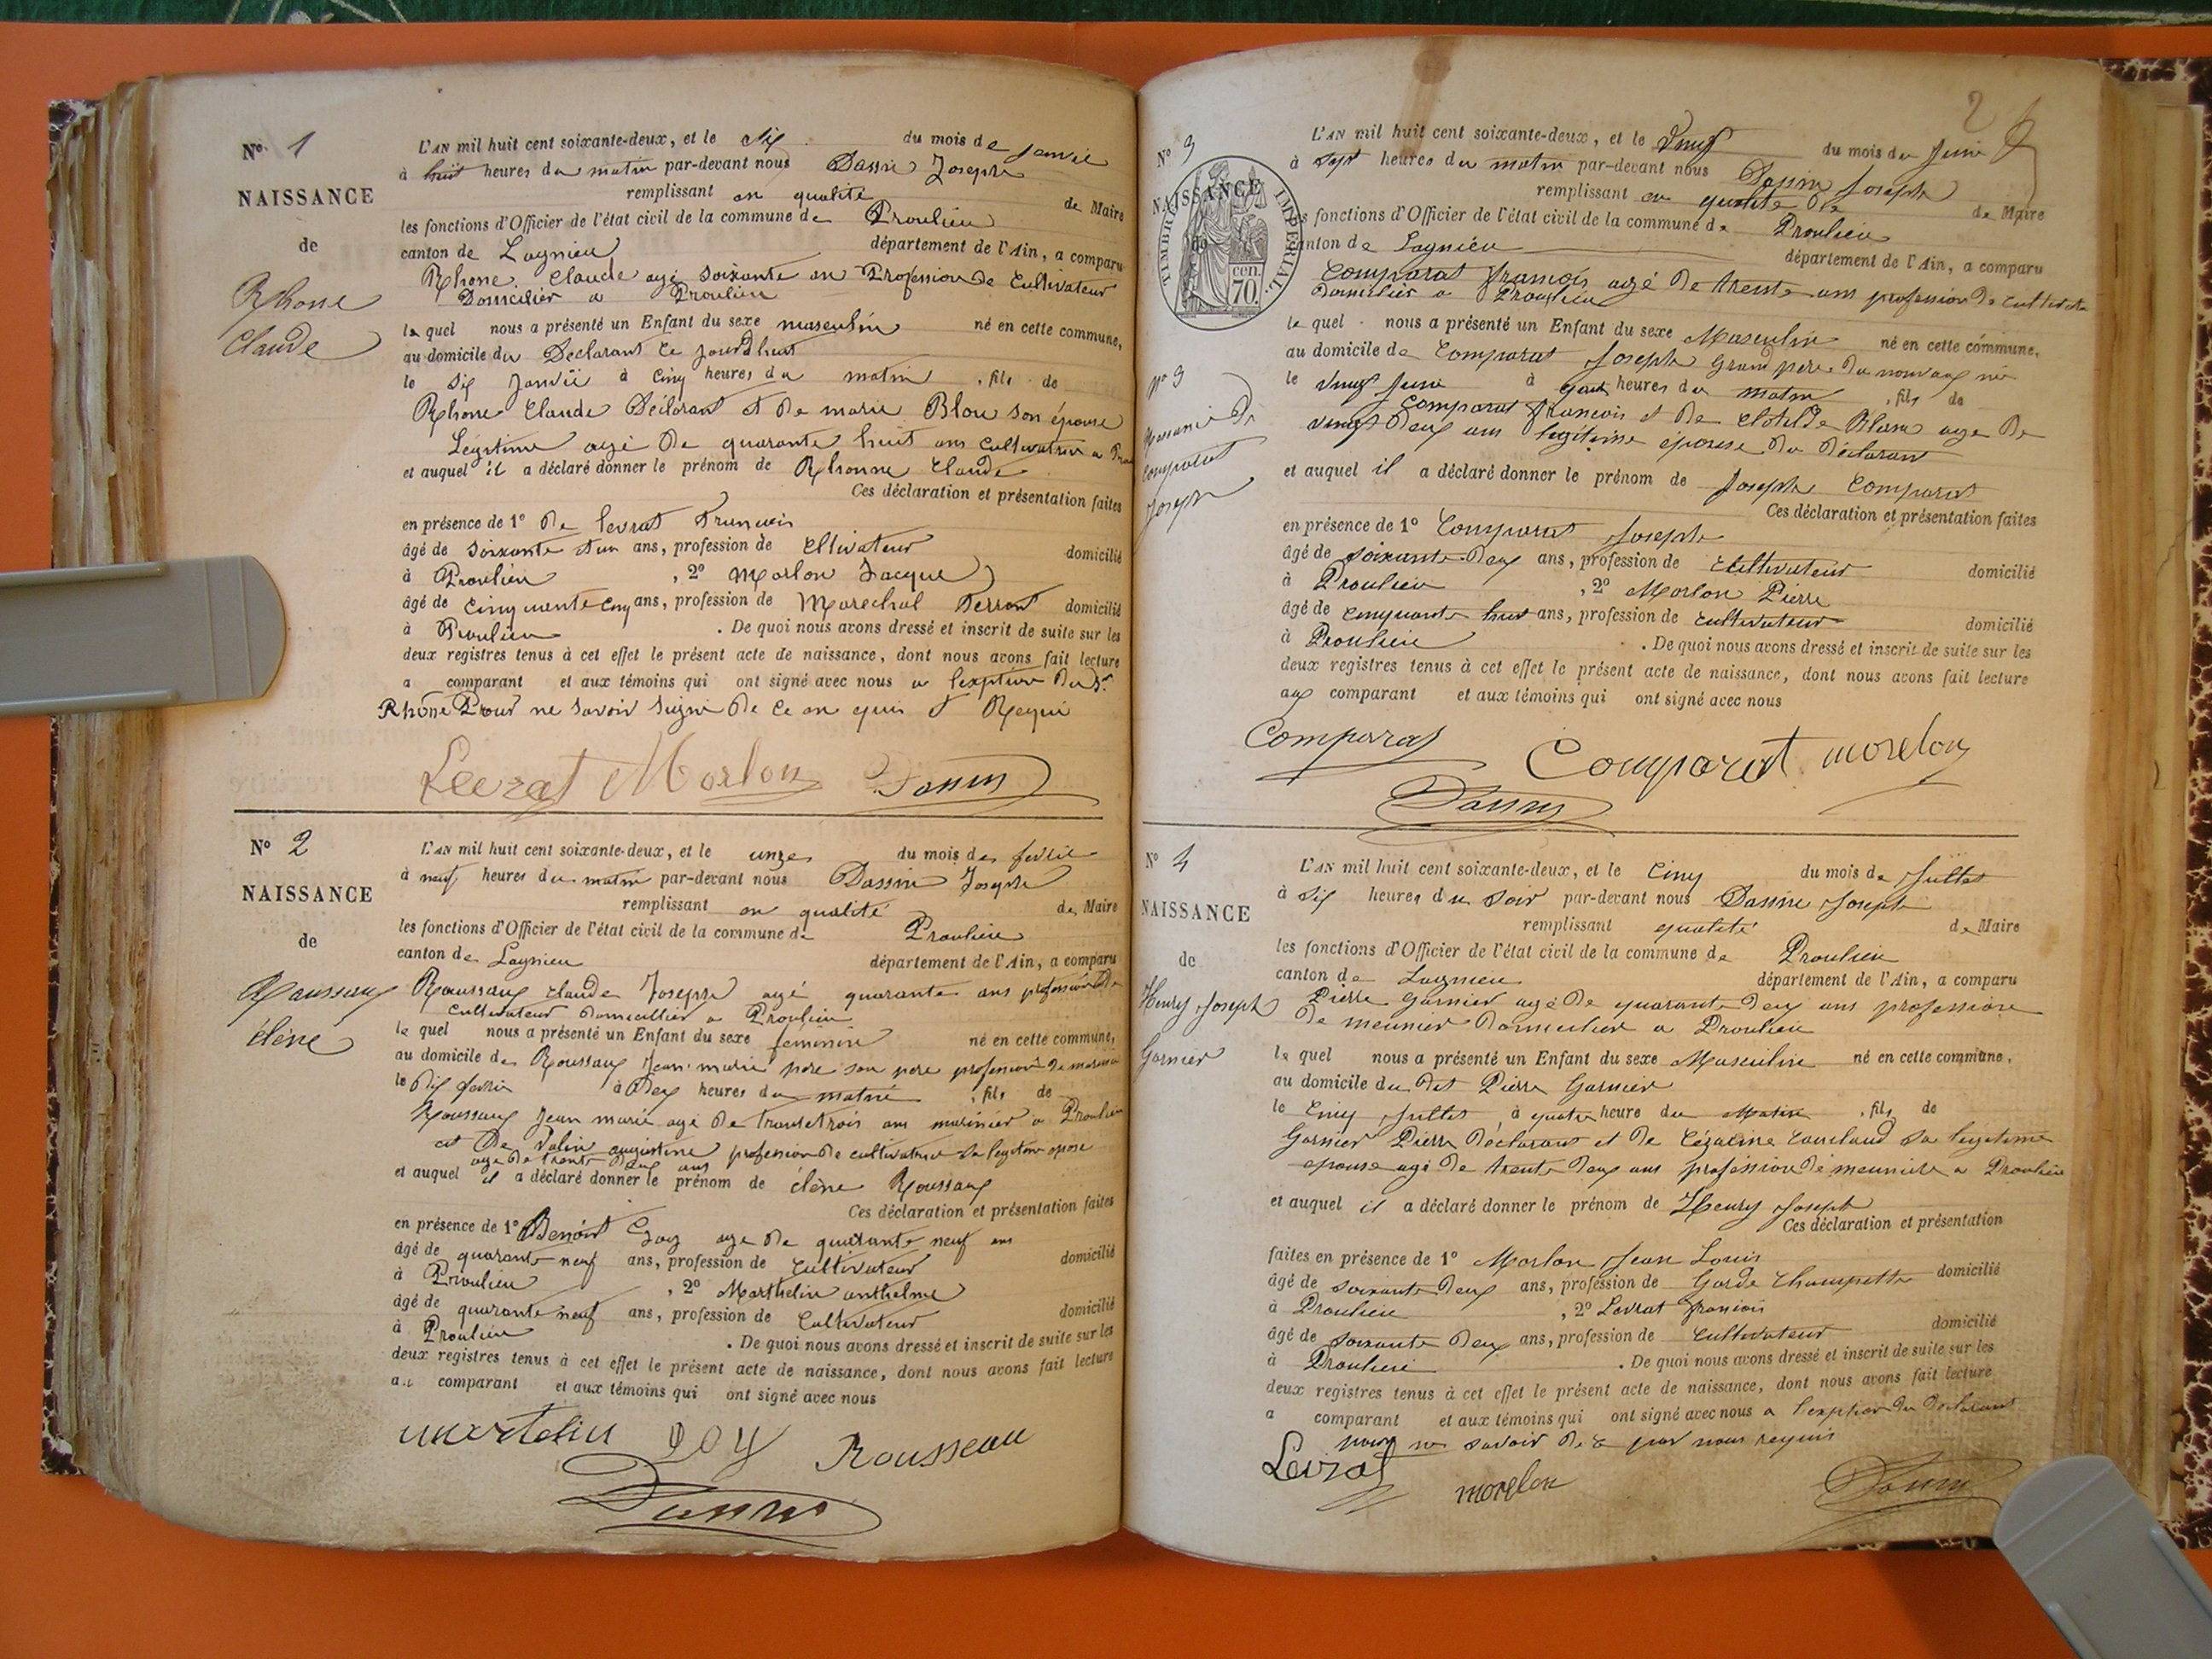 N° 1
NAISSANCE
de
Rhone
Claude
L'AN mil huit cent soixante-deux, et le Six du mois de Janvié
à huit heures du matin par-devant nous Dassin Joseph
remplissant en qualité de Maire
les fonctions d'Officier de l'état civil de la commune de Proulieu
canton de Lagnieu département de l'Ain, a comparu
Rhone Claude agé soixante an Profession de Cultivateur
Domicilier a Proulieu
le quel nous a présenté un Enfant du sexe masculin né en cette commune,
au domicile du Déclarant ce jourdhuit
le Six Janvié à Cinq heures du matin , fils de
Rhone Claude Déclarant et de marie Blou son épouse
Légitime agé De quarante huit ans Cultivatrice a
et auquel il a déclaré donner le prénom de Rhonne Claude
Ces déclaration et présentation faites
en présence de 1° De levrat
âgé de Soixante et un ans, profession de Cltivateur domicilié
à Proulieu , 2° Morlon Jacque
âgé de Cinquante Cinq ans, profession de Marechal Ferrant domicilié
à Proulieu . De quoi nous avons dressé et inscrit de suite sur les
deux registres tenus à cet effet le présent acte de naissance, dont nous avons fait lecture
a comparant et aux témoins qui ont signé avec nous a lexption du
Rhône Pour ne Savoir Signé De Ce en quis et Requi
Levrat Morlon Dassin
N° 2
NAISSANCE
de
Roussaux
éléne
L'AN mil huit cent soixante-deux, et le unze du mois de fevrié
à neuf heures du matin par-devant nous Dassin Joseph
remplissant en qualité de Maire
les fonctions d'Officier de l'état civil de la commune de Proulieu
canton de Lagnieu département de l'Ain, a comparu
Roussaux Claude Joseph agé quarante ans profession de
Cultivateur Domicillier a Proulieu
le quel nous a présenté un Enfant du sexe feminin né en cette commune,
au domicile de Roussaux Jean marie pere son pere profession de
le Dix fevrié à Dix heures du matin , fils de
Roussaux Jean marie agé De trantetrois ans marinier a Proulieu
et De augustine profession de cultivatrice Sa legitime epose
age De trente Deux ans
et auquel il a déclaré donner le prénom de éléne Roussaux
Ces déclaration et présentation faites
en présence de 1° Benoit Goy age De quarante neuf ans
âgé de quarante neuf ans, profession de Cultivateur domicilié
à Proulieu , 2° Marthelin anthelme
âgé de quarante neuf ans, profession de Cultivateur domicilié
à Proulieu . De quoi nous avons dressé et inscrit de suite sur les
deux registres tenus à cet effet le présent acte de naissance, dont nous avons fait lecture
a comparant et aux témoins qui ont signé avec nous
martelin goy Rousseau
Dassin
2
N° 3
NAISSANCE
de
TIMBRE IMPERIAL
70 cen.
N° 3
Comparat
Joseph
L'AN mil huit cent soixante-deux, et le Vingt du mois de Juin
à Sept heures du matin par-devant nous Dassin Joseph
remplissant en qualité De de Maire
les fonctions d'Officier de l'état civil de la commune de Proulieu
canton de Lagnieu département de l'Ain, a comparu
Comparat François agé De trente ans profession De Cultivateur
Domicilier a Proulieu
le quel nous a présenté un Enfant du sexe Masculin né en cette commune,
au domicile de Comparat Joseph Grand pere Du nouvaux né
le Vingt Juin à heures du matin , fils de
Comparat François et De Clotilde Blanc age De
vingt Deux ans legitime épouse Du Déclarant
et auquel il a déclaré donner le prénom de Joseph Comparat
Ces déclaration et présentation faites
en présence de 1° Comparat Joseph
âgé de Soixante-Deux ans, profession de Cultivateur domicilié
à Proulieu , 2° Morlon Pierre
âgé de Cinquante huit ans, profession de Cultivateur domicilié
à Proulieu . De quoi nous avons dressé et inscrit de suite sur les
deux registres tenus à cet effet le présent acte de naissance, dont nous avons fait lecture
aux comparant et aux témoins qui ont signé avec nous
Comparat Comparat morelon
Dassin
N° 4
NAISSANCE
de
Henry Joseph
Garnier
L'AN mil huit cent soixante-deux, et le Cinq du mois de Juillet
à Six heures du Soir par-devant nous Dassin Joseph
remplissant qualité de Maire
les fonctions d'Officier de l'état civil de la commune de Proulieu
canton de Lagnieu département de l'Ain, a comparu
Pierre Garnier agé De quarante Deux ans profession
De meunier Domicilier a Proulieu
le quel nous a présenté un Enfant du sexe Masculin né en cette commune,
au domicile du Dit Pierre Garnier
le Cinq Juillet à quatre heure du Matin , fils de
Garnier Pierre Déclarant et De Sa legitime
epouse agé De trente Deux ans profession De meunier a Proulieu
et auquel il a déclaré donner le prénom de Henry Joseph
Ces déclaration et présentation
faites en présence de 1° Morlon Jean Louis
âgé de Soixante Deux ans, profession de Garde Champette domicilié
à Proulieu , 2° Levrat François
âgé de Soixante Deux ans, profession de Cultivateur domicilié
à Proulieu . De quoi nous avons dressé et inscrit de suite sur les
deux registres tenus à cet effet le présent acte de naissance, dont nous avons fait lecture
a comparant et aux témoins qui ont signé avec nous a lexption du Déclarant
pour ne savoir De par nous requis
Levrat morelon Dassin